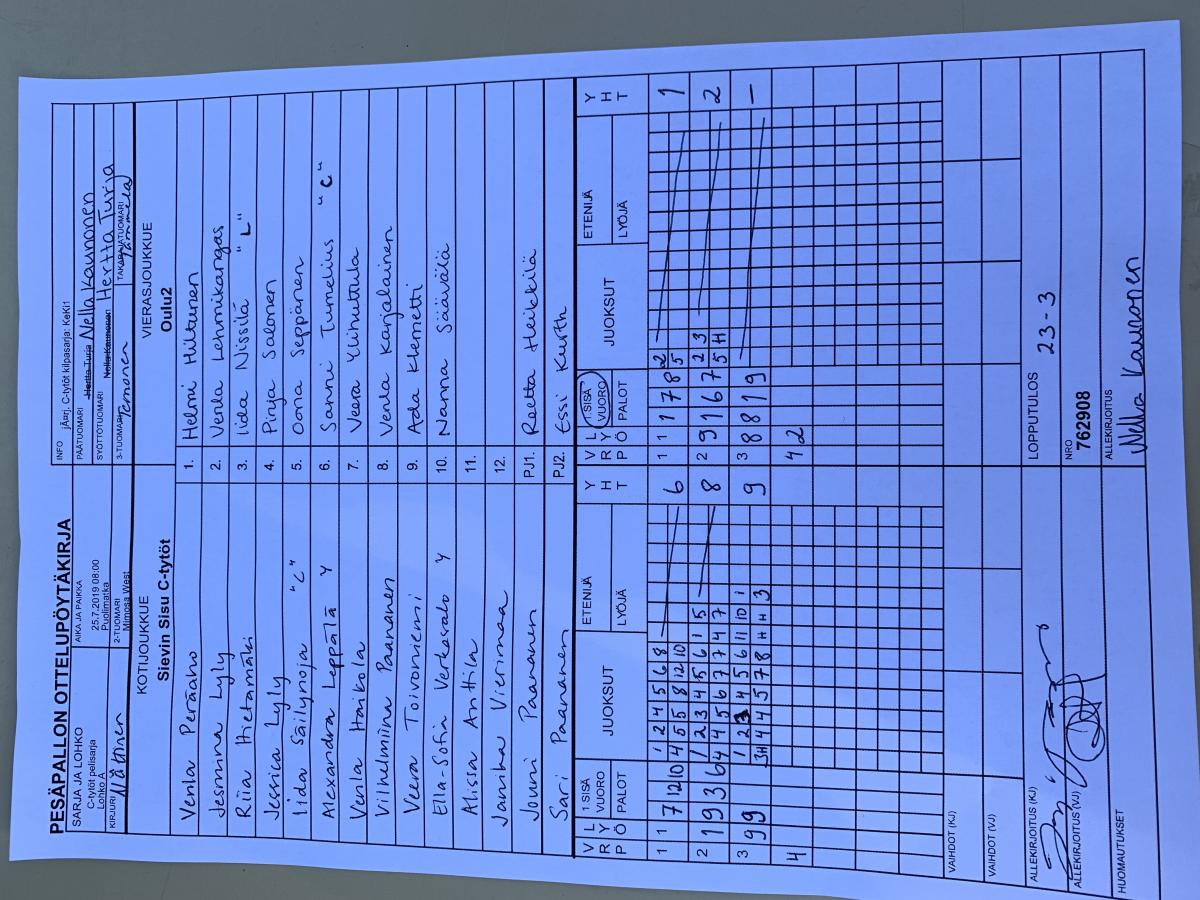 PESÄPALLON OTTELUPÖYTÄKIRJA
SARJA JA LOHKO
C-tytöt pelisarja
Lohko A
AIKA JA PAIKKA
25.7.2019 08:00
Puolimatka
INFO jÄ¤rj. C-tytöt kilpasarja: KeKi1
PÄÄTUOMARI Hertta Turja Nella Kaunonen
SYÖTTÖTUOMARI Nella Kaunonen Hertta Turja
KIRJURI
2-TUOMARI
Mimosa West
3-TUOMARI
TAKARAJATUOMARI
Tammela
KOTIJOUKKUE
Sievin Sisu C-tytöt
VIERASJOUKKUE
Oulu2
Venla Peräaho 1. Helmi Hiltunen
Jesmina Lyly 2. Venla Lehmikangas
Riia Hietamäki 3. Iida Nissilä "L"
Jessica Lyly 4. Pinja Salonen
Iida Säilynoja "C" 5. Oona Seppänen
Alexandra Leppälä Y 6. Sanni Tumelius "C"
Venla Haikola 7. Veera Ylihuttula
Vilhelmiina Paananen 8. Venla Karjalainen
Veera Toivoniemi 9. Ada Klemetti
Ella-Sofia Verkasalo Y 10. Nanna Säävälä
Alissa Anttila 11.
Janika Vierimaa 12.
Jouni Paananen PJ1. Reetta Heikkilä
Sari Paananen PJ2. Essi Kurth
V R P L Y Ö 1.SISÄ VUORO PALOT JUOKSUT ETENIJÄ LYÖJÄ Y H T V R P L Y Ö 1.SISÄ VUORO PALOT JUOKSUT ETENIJÄ LYÖJÄ Y H T
1 1 7 12 10 1 2 4 5 6 8 6 1 1 1 7 8 2 1
4 5 5 8 12 10 5
2 1 9 3 6 1 2 3 4 5 6 1 5 8 2 9 1 6 7 2 3 2
4 4 5 6 7 7 4 7 5 H
3 9 9 1 2 3 4 5 6 11 10 1 9 3 8 8 1 9 –
3H 4 4 5 7 8 H H 3
4 4 2
VAIHDOT (KJ)
VAIHDOT (VJ)
ALLEKIRJOITUS (KJ)
LOPPUTULOS 23-3
ALLEKIRJOITUS (VJ)
NRO
762908
HUOMAUTUKSET
ALLEKIRJOITUS
Nella Kaunonen